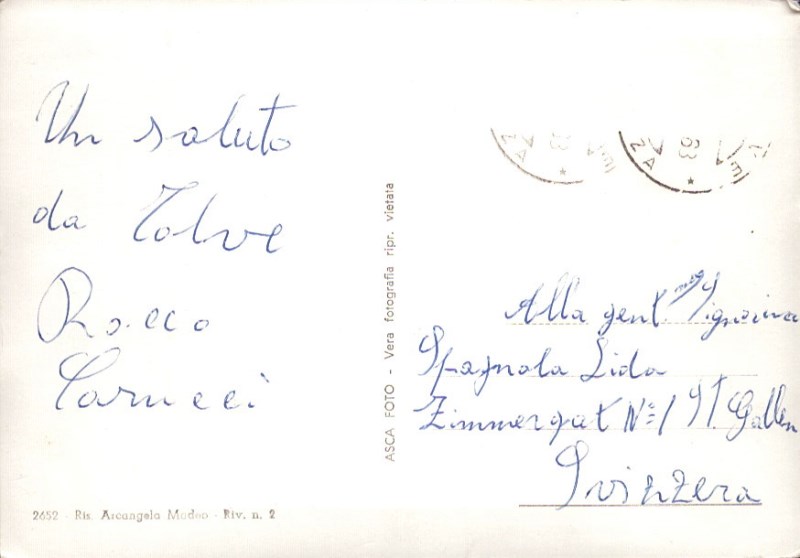 Un saluto
da Tolve
Rocco
Carucci
2652 - Ris. Arcangela Modeo - Riv. n. 2
ASCA FOTO - Vera fotografia ripr. vietata
ZA 63
Alla gent.ma Signorina
Spagnola Lida
Zimmergat N° 1 St. Gallen
Svinzera